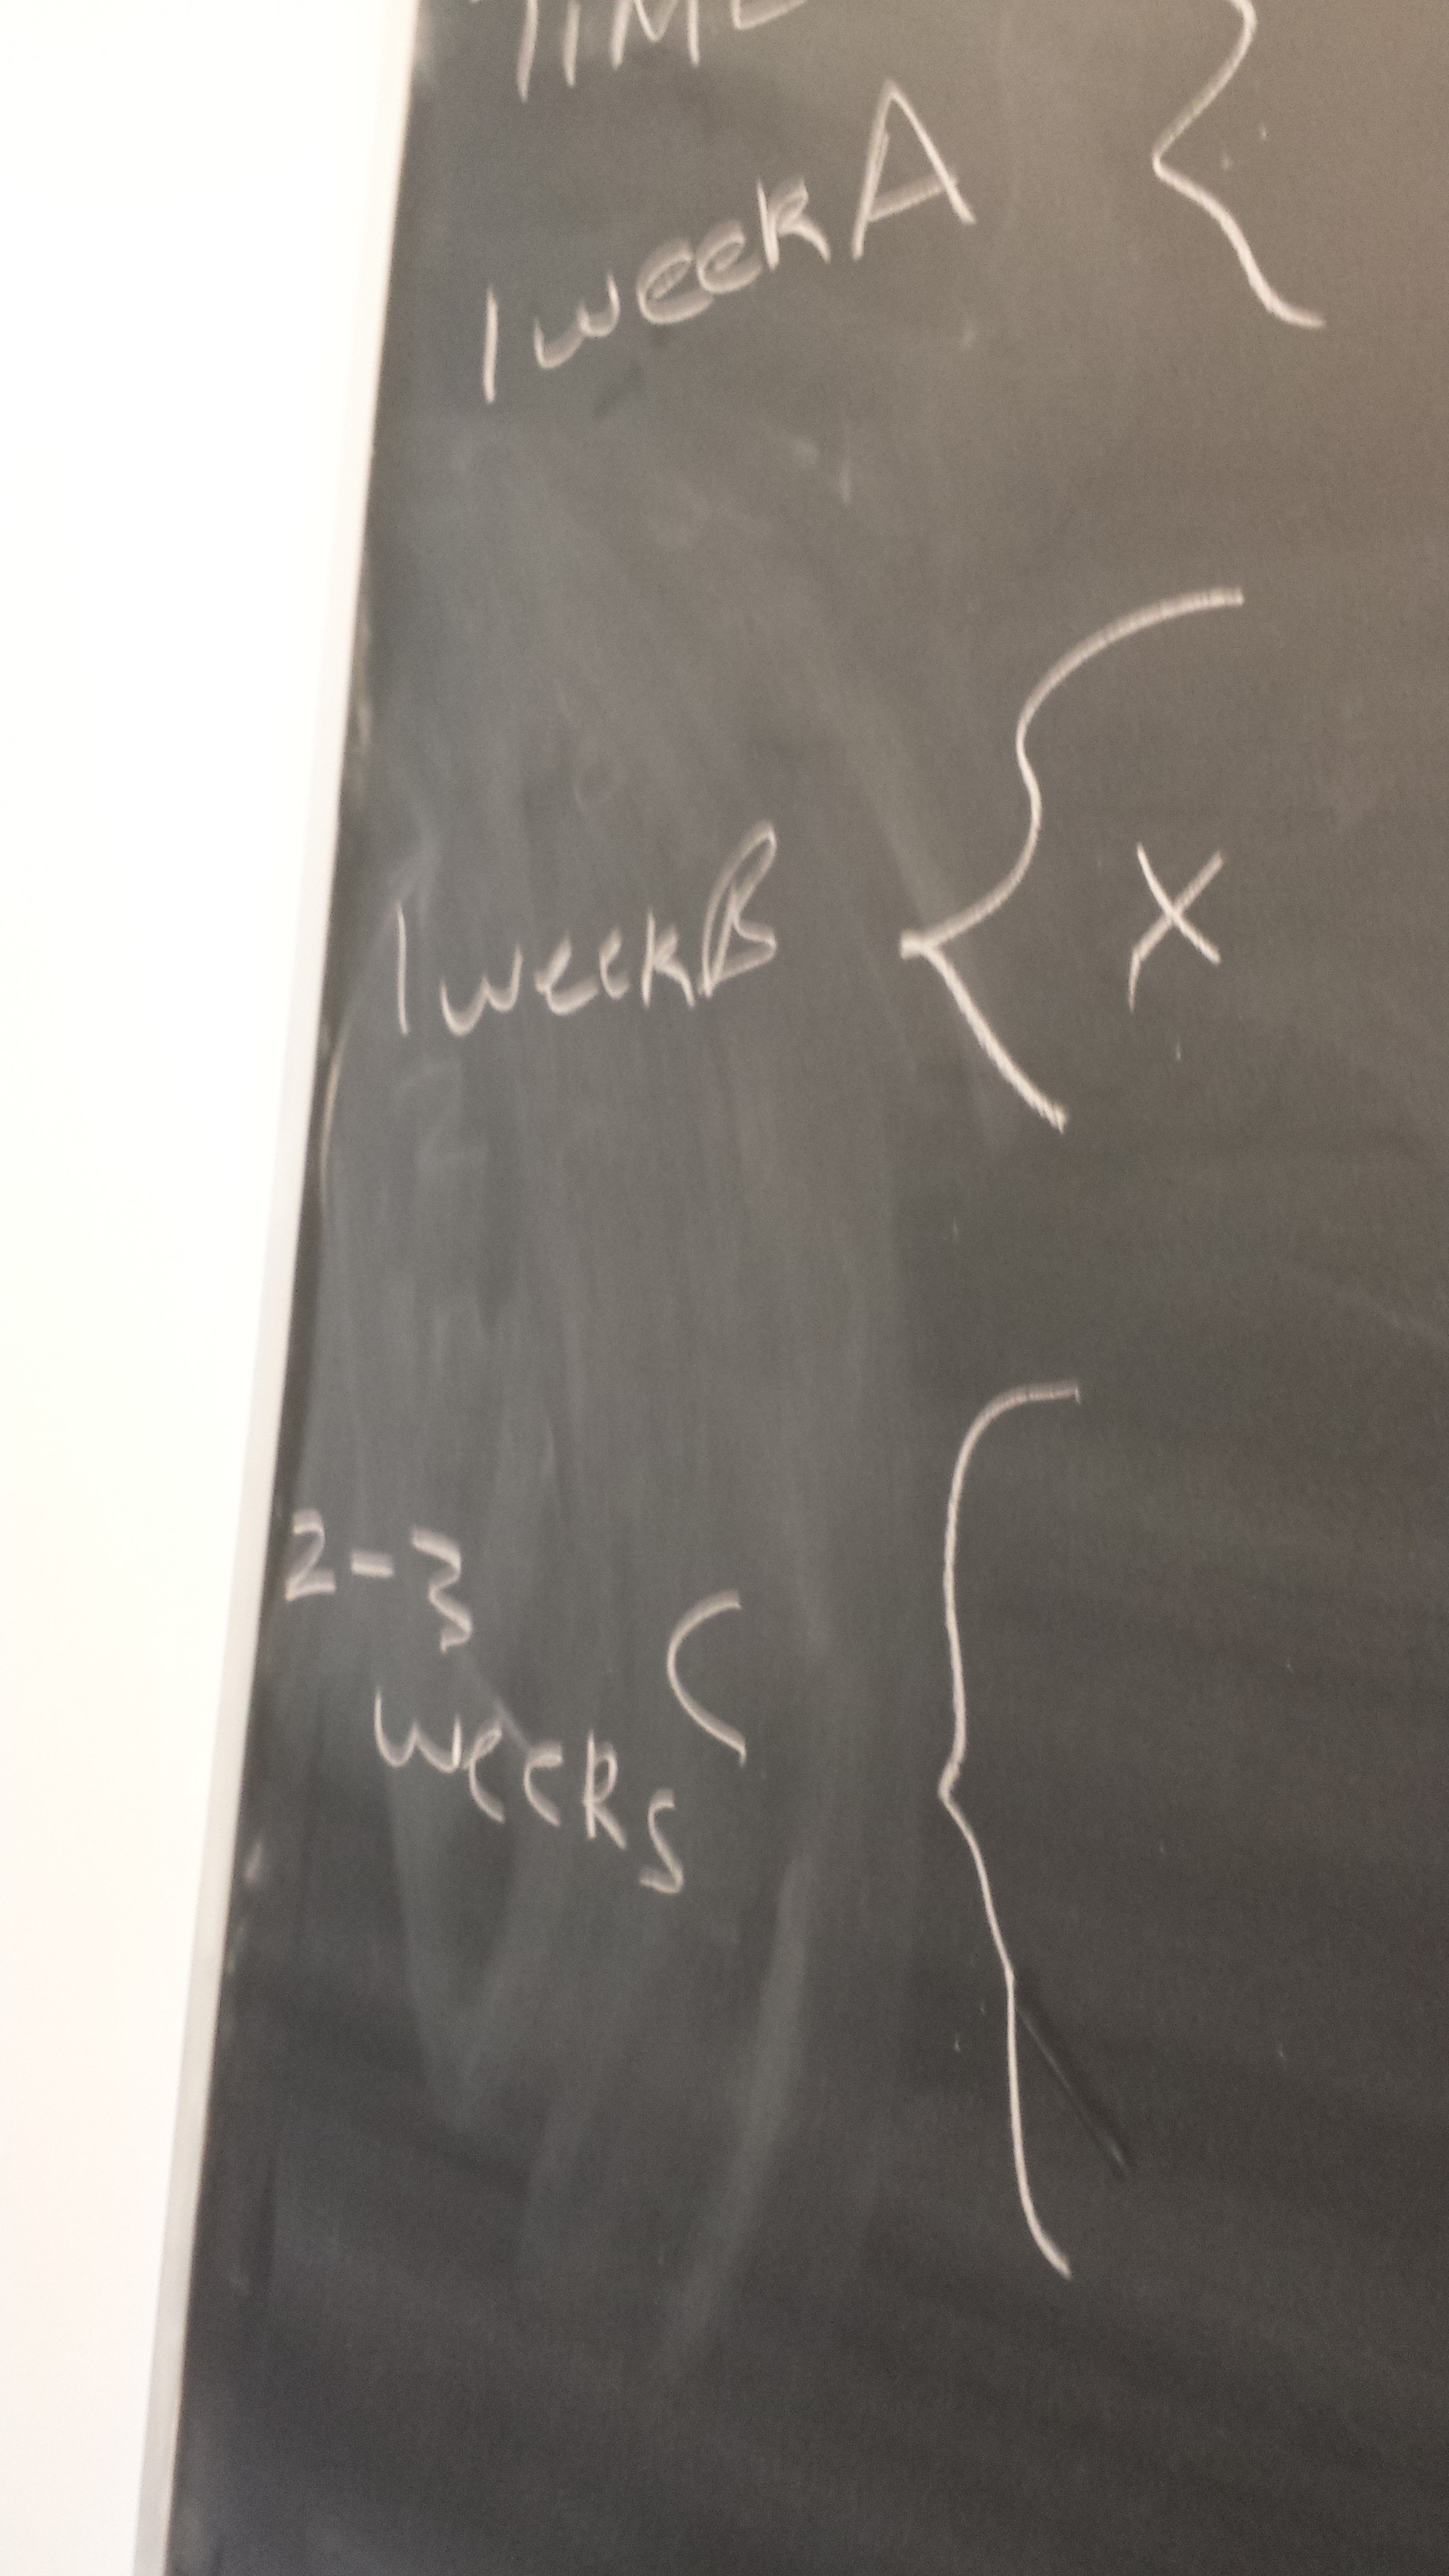 TIME
1 week A {
1 week B { X
2-3
weeks C {